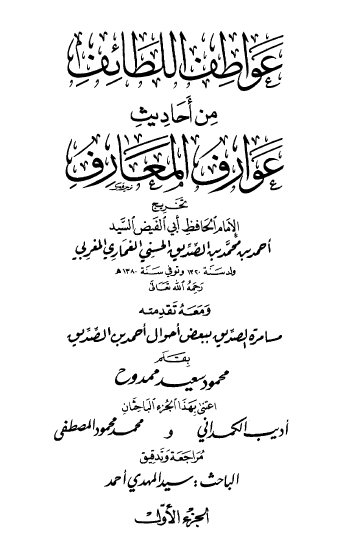 عَوَاطِفُ اللَّطَائِفِ
مِن أَحَادِيثِ
عَوَارِفِ المَعَارِفِ
تخريج
الإمام الحافظ أبي الفيض السيد
أحمد بن محمد بن الصديق الحسني الغماري المغربي
ولد سنة ١٣٢٠ وتوفي سنة ١٣٨٠ هـ
رحمه الله تعالى
ومعه تقدمته
مسامرة الصديق ببعض أحوال أحمد بن الصديق
بقلم
محمود سعيد ممدوح
اعتنى بهذا الجزء الباحثان
أديب الكمداني و محمد محمود المصطفى
مراجعة وتدقيق
الباحث : سيد المهدي أحمد
الجزء الأول